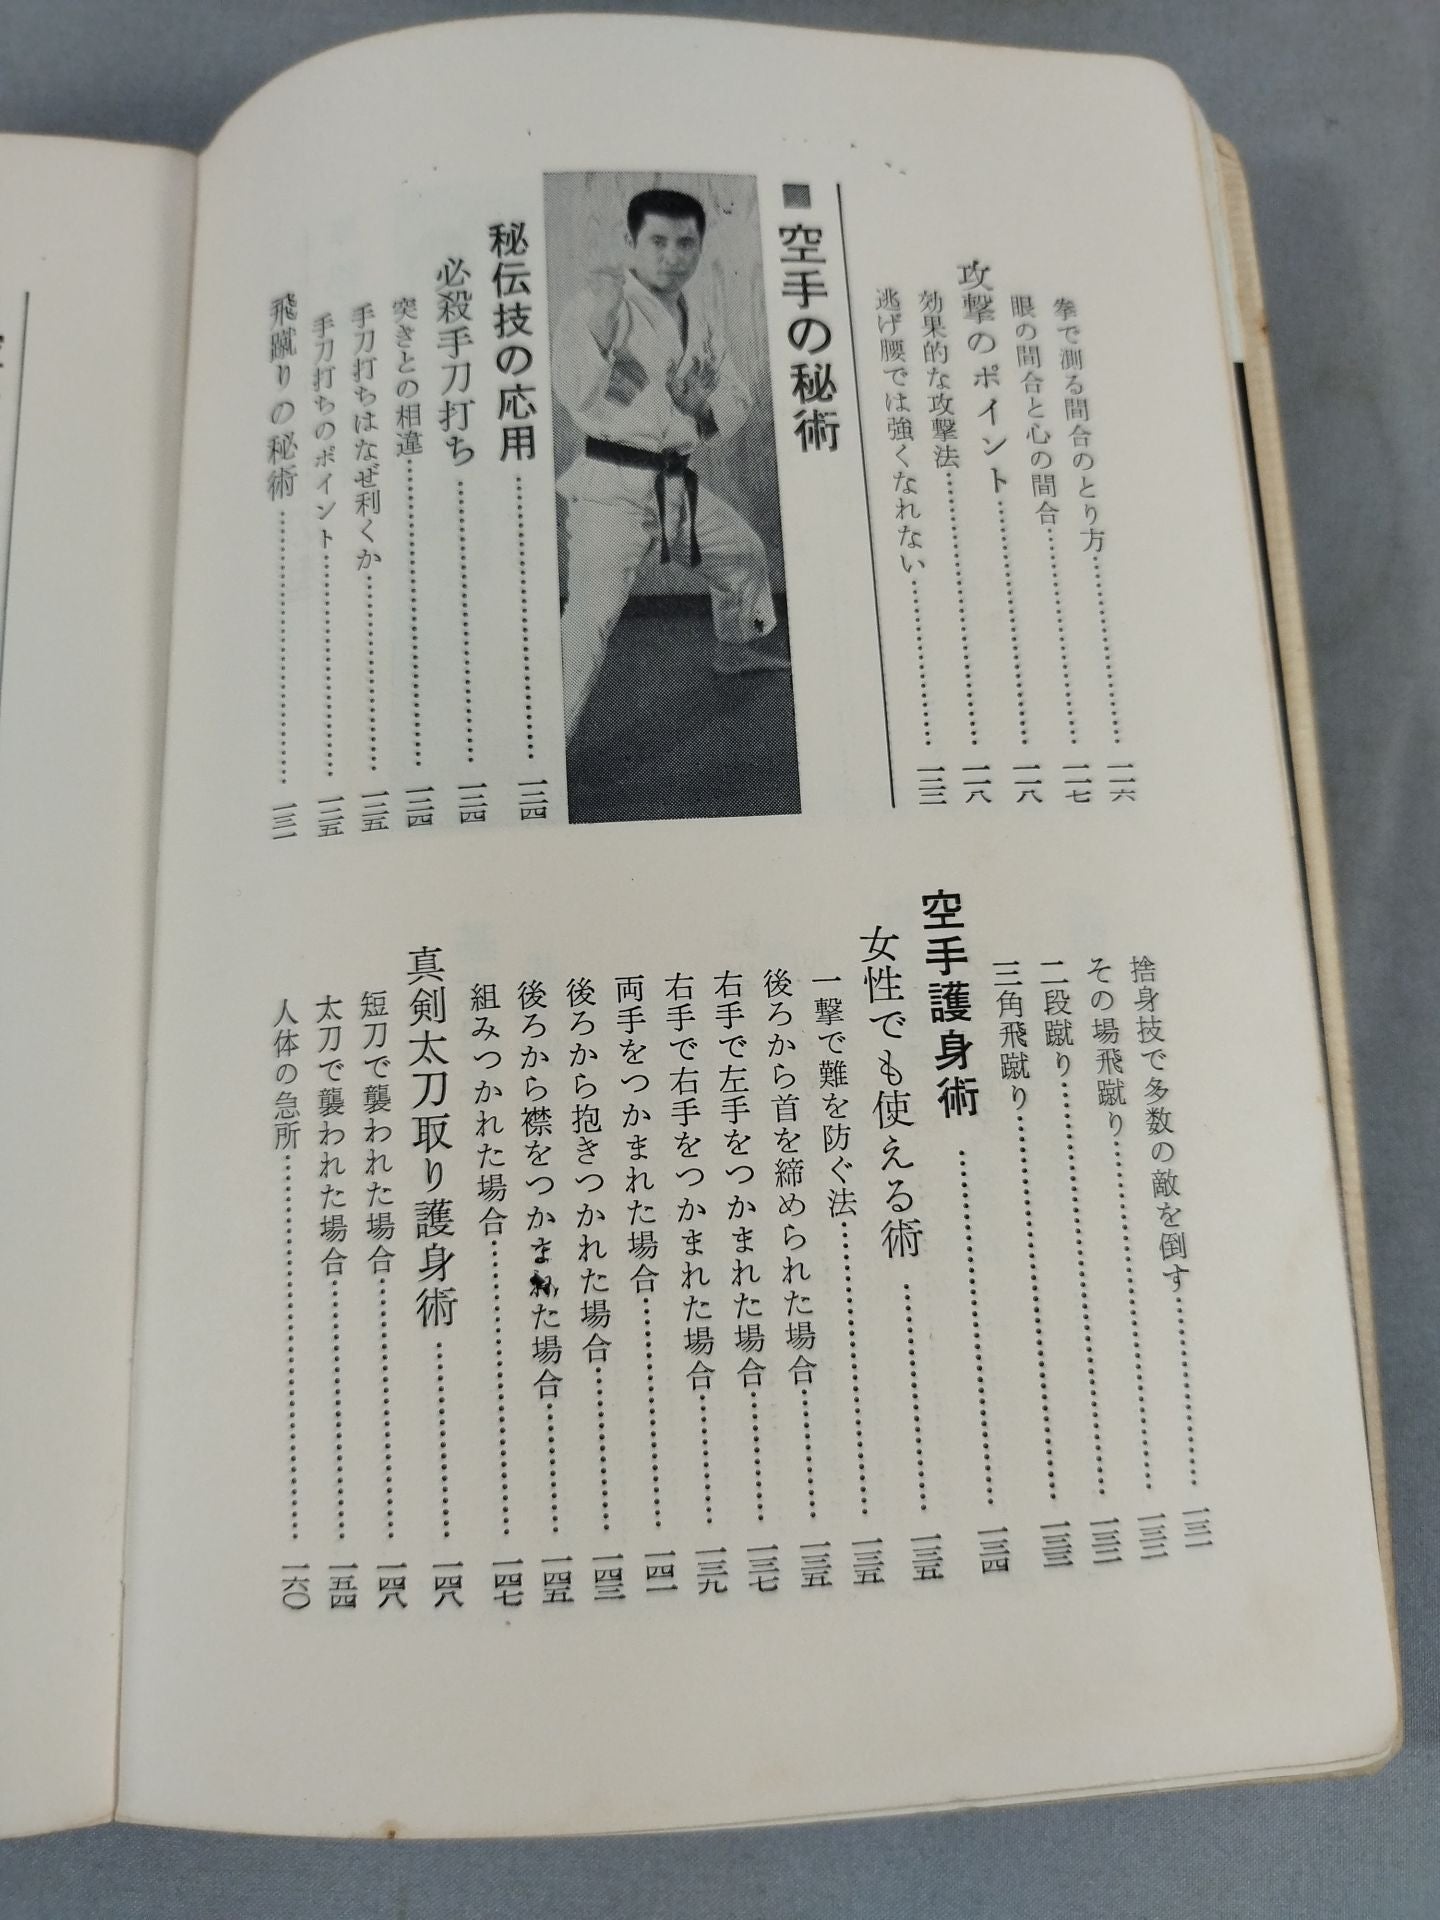 拳で測る間合のとり方…………一一六
眼の間合と心の間合…………一一七
攻撃のポイント…………一一八
効果的な攻撃法…………一一八
逃げ腰では強くなれない…………一二三
■空手の秘術
秘伝技の応用…………一二四
必殺手刀打ち…………一二四
突きとの相違…………一二四
手刀打ちはなぜ利くか…………一二五
手刀打ちのポイント…………一二五
飛蹴りの秘術…………一三一
捨身技で多数の敵を倒す…………一三一
その場飛蹴り…………一三二
二段蹴り…………一三二
三角飛蹴り…………一三三
空手護身術…………一三四
女性でも使える術…………一三五
一撃で難を防ぐ法…………一三五
後ろから首を締められた場合…………一三五
右手で左手をつかまれた場合…………一三七
右手で右手をつかまれた場合…………一三九
両手をつかまれた場合…………一四一
後ろから抱きつかれた場合…………一四三
後ろから襟をつかまれた場合…………一四五
組みつかれた場合…………一四七
真剣太刀取り護身術…………一四八
短刀で襲われた場合…………一四八
太刀で襲われた場合…………一五四
人体の急所…………一六〇